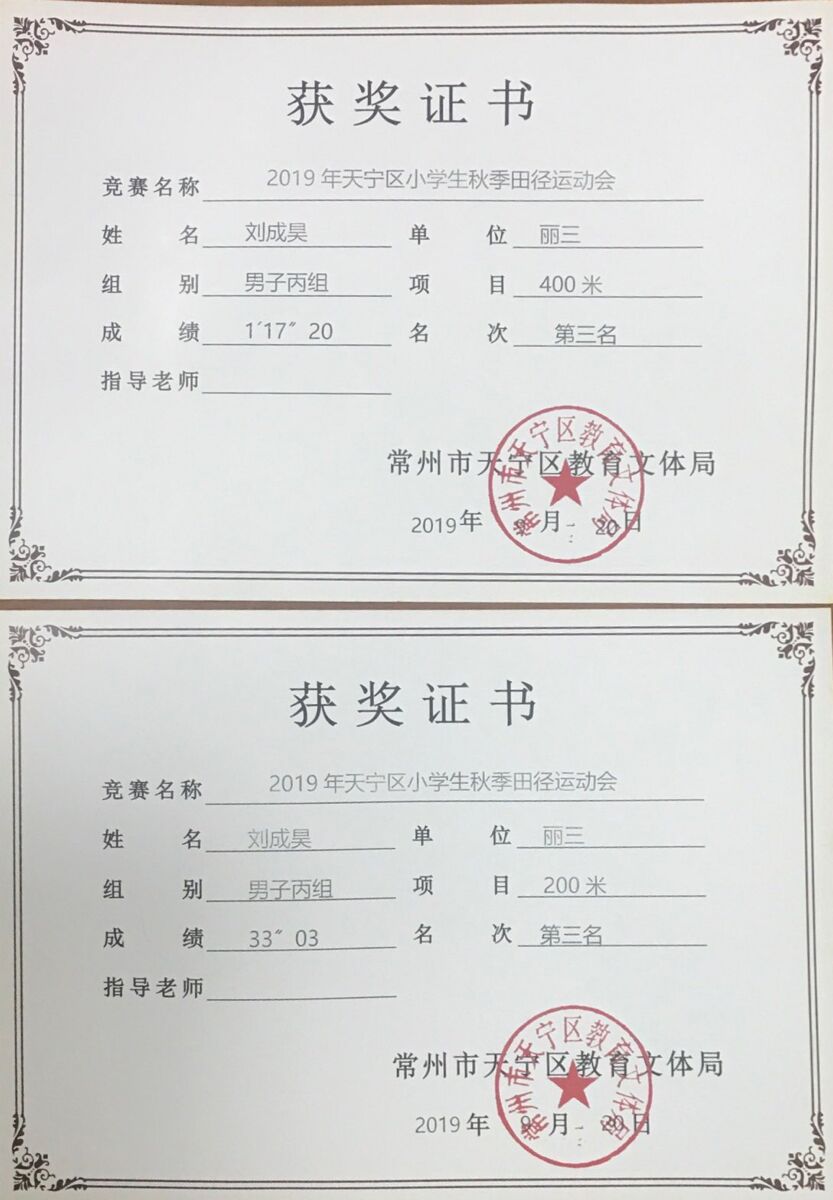 获奖证书
竞赛名称 2019年天宁区小学生秋季田径运动会
姓名 刘成昊 单位 丽三
组别 男子丙组 项目 400米
成绩 1′17″20 名次 第三名
指导老师
常州市天宁区教育文体局
常州市天宁区教育文体局
2019年9月20日
获奖证书
竞赛名称 2019年天宁区小学生秋季田径运动会
姓名 刘成昊 单位 丽三
组别 男子丙组 项目 200米
成绩 33″03 名次 第三名
指导老师
常州市天宁区教育文体局
常州市天宁区教育文体局
2019年9月20日